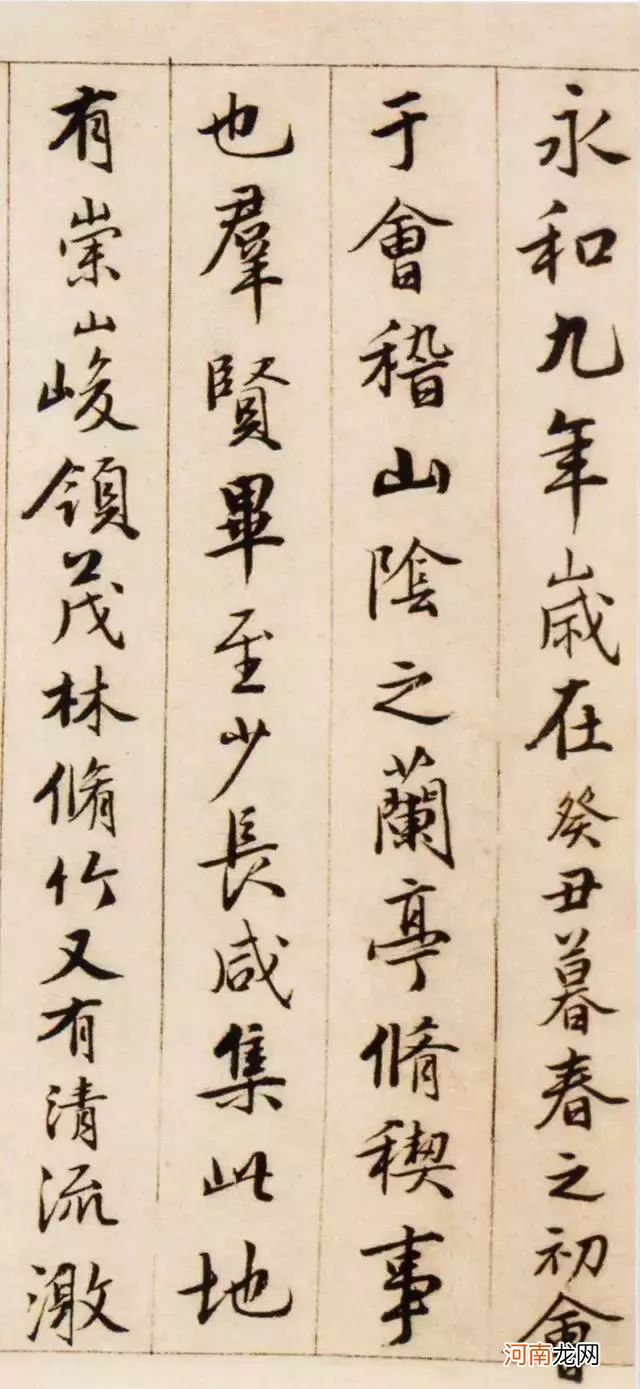 永和九年歲在癸丑暮春之初會
于會稽山陰之蘭亭脩稧事
也羣賢畢至少長咸集此地
有崇山峻領茂林脩竹又有清流激
河南龙网